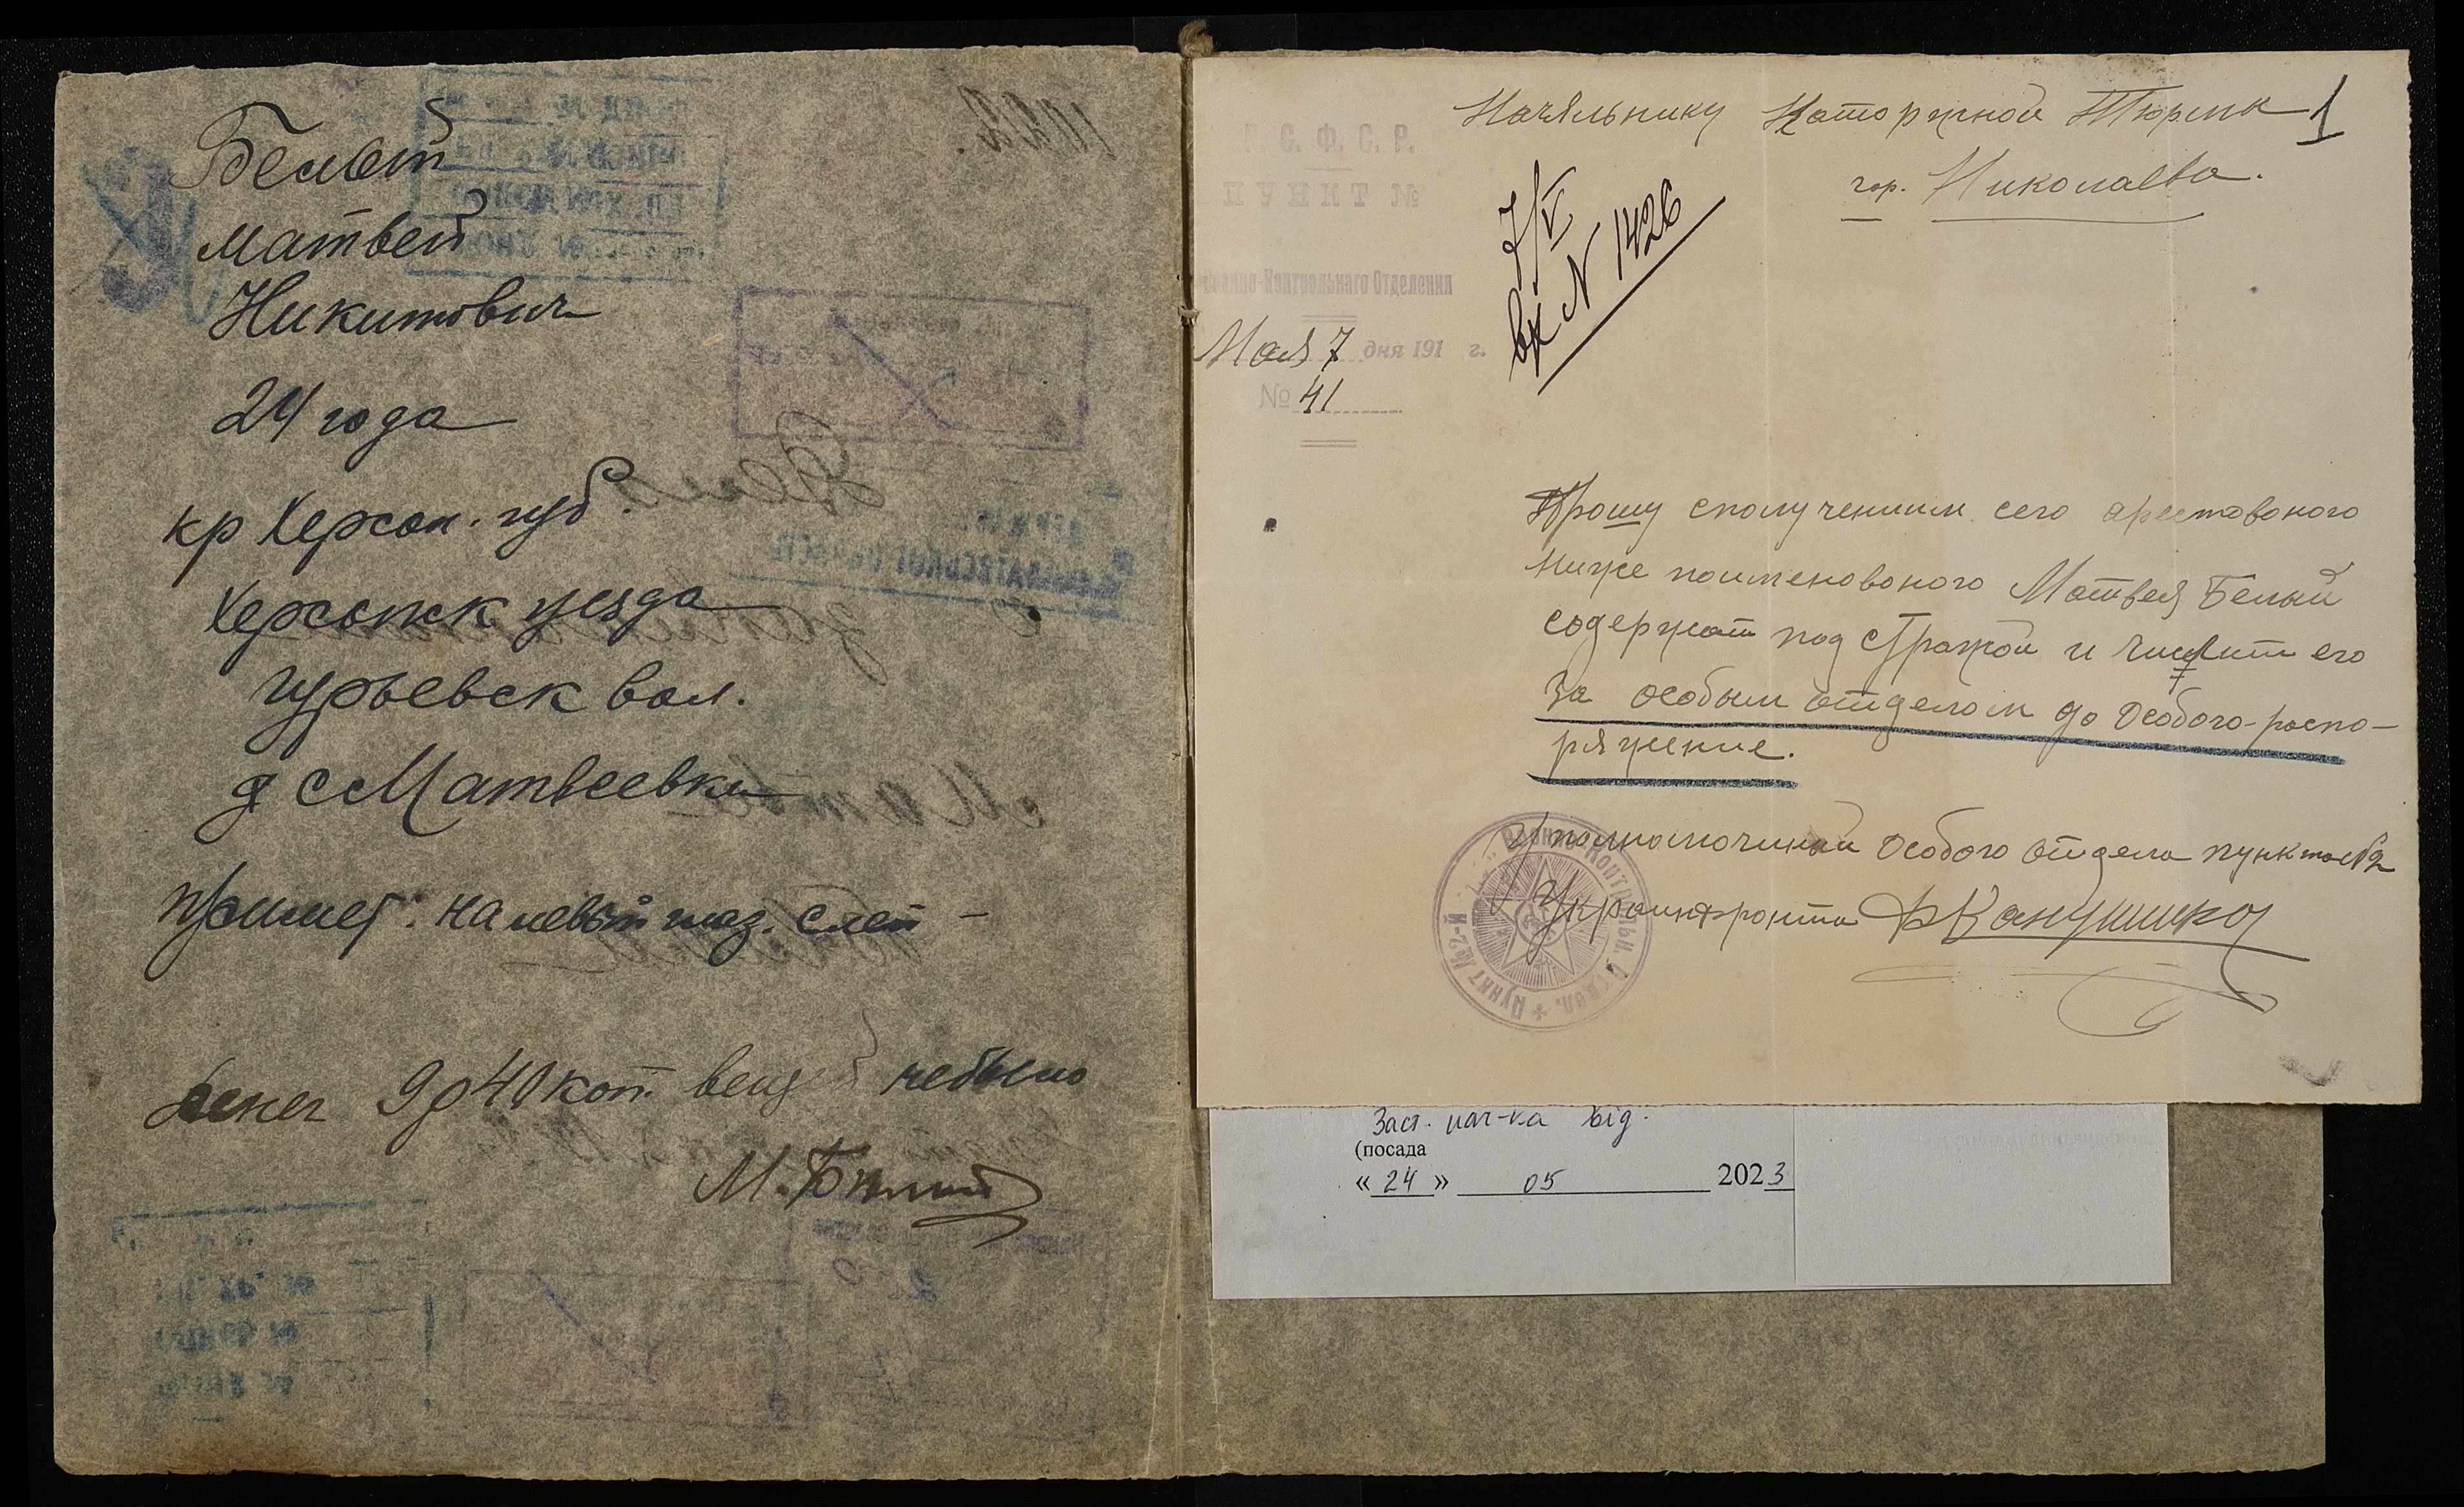 Белый
Матвей
Никитович
24 года
кр Херсон. губ.
Херсонск уезда
гурьевск вол.
д с Матвеевки
Примет: на левый глаз. слеп –
денег 9р 40 коп. вещей небыло
М. Белый
Начяльнику Каторжной Тюрмы
1
гор. Николаева.
Р. С. Ф. С. Р.
ПУНКТ №
Контрольнаго Отделения
Мая 7 дня 191 г.
№ 41
7/V
вх N 1426
Прошу сполучением сего арестованого
ниже поименованого Матвея Белый
содержат под стражой и числит его
за особым отделом до Особого-распо-
ряжение.
Уполномочиный Особого отдела пункта №2
Украинфронта
Пункт № 2-й
Заст. нач-ка від.
(посада
« 24 » 05 2023